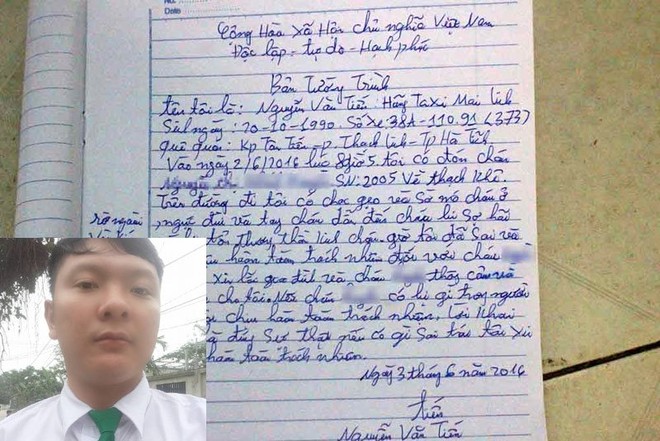 No.
Date
Cộng Hòa Xã Hội chủ nghĩa Việt Nam
Độc lập - tự do - Hạnh phúc
Bản Tường Trình
tên tôi là: Nguyễn Văn Tiến Hãng Taxi Mai Linh
Sinh ngày: 20-10-1990 Số Xe: 38A-110.91 (373)
quê quán: Kp Tân Tiến - p. Thạch Linh - Tp Hà Tĩnh
Vào ngày 2/6/2016 lúc 8giờ5 tôi có đón cháu
Nguyễn SN: 2005 Về Thạch Khê.
Trên đường đi tôi có chọc gẹo và Sờ mó cháu ở
ngực đùi và tay cháu dẫn đến cháu bị Sợ hãi
tổn thương tinh thần cháu giờ tôi đã Sai và
hoàn toàn trách nhiệm đối với cháu
Xin lỗi gia đình và cháu thông cảm và
cho tôi. Nếu cháu có bị gì trong người
chịu hoàn toàn trách nhiệm, Lời Khai
là đúng Sự thật nếu có gì Sai trái tôi xin
hoàn toàn trách nhiệm.
Ngày 3 tháng 6 năm 2016
Tiến
Nguyễn Văn Tiến